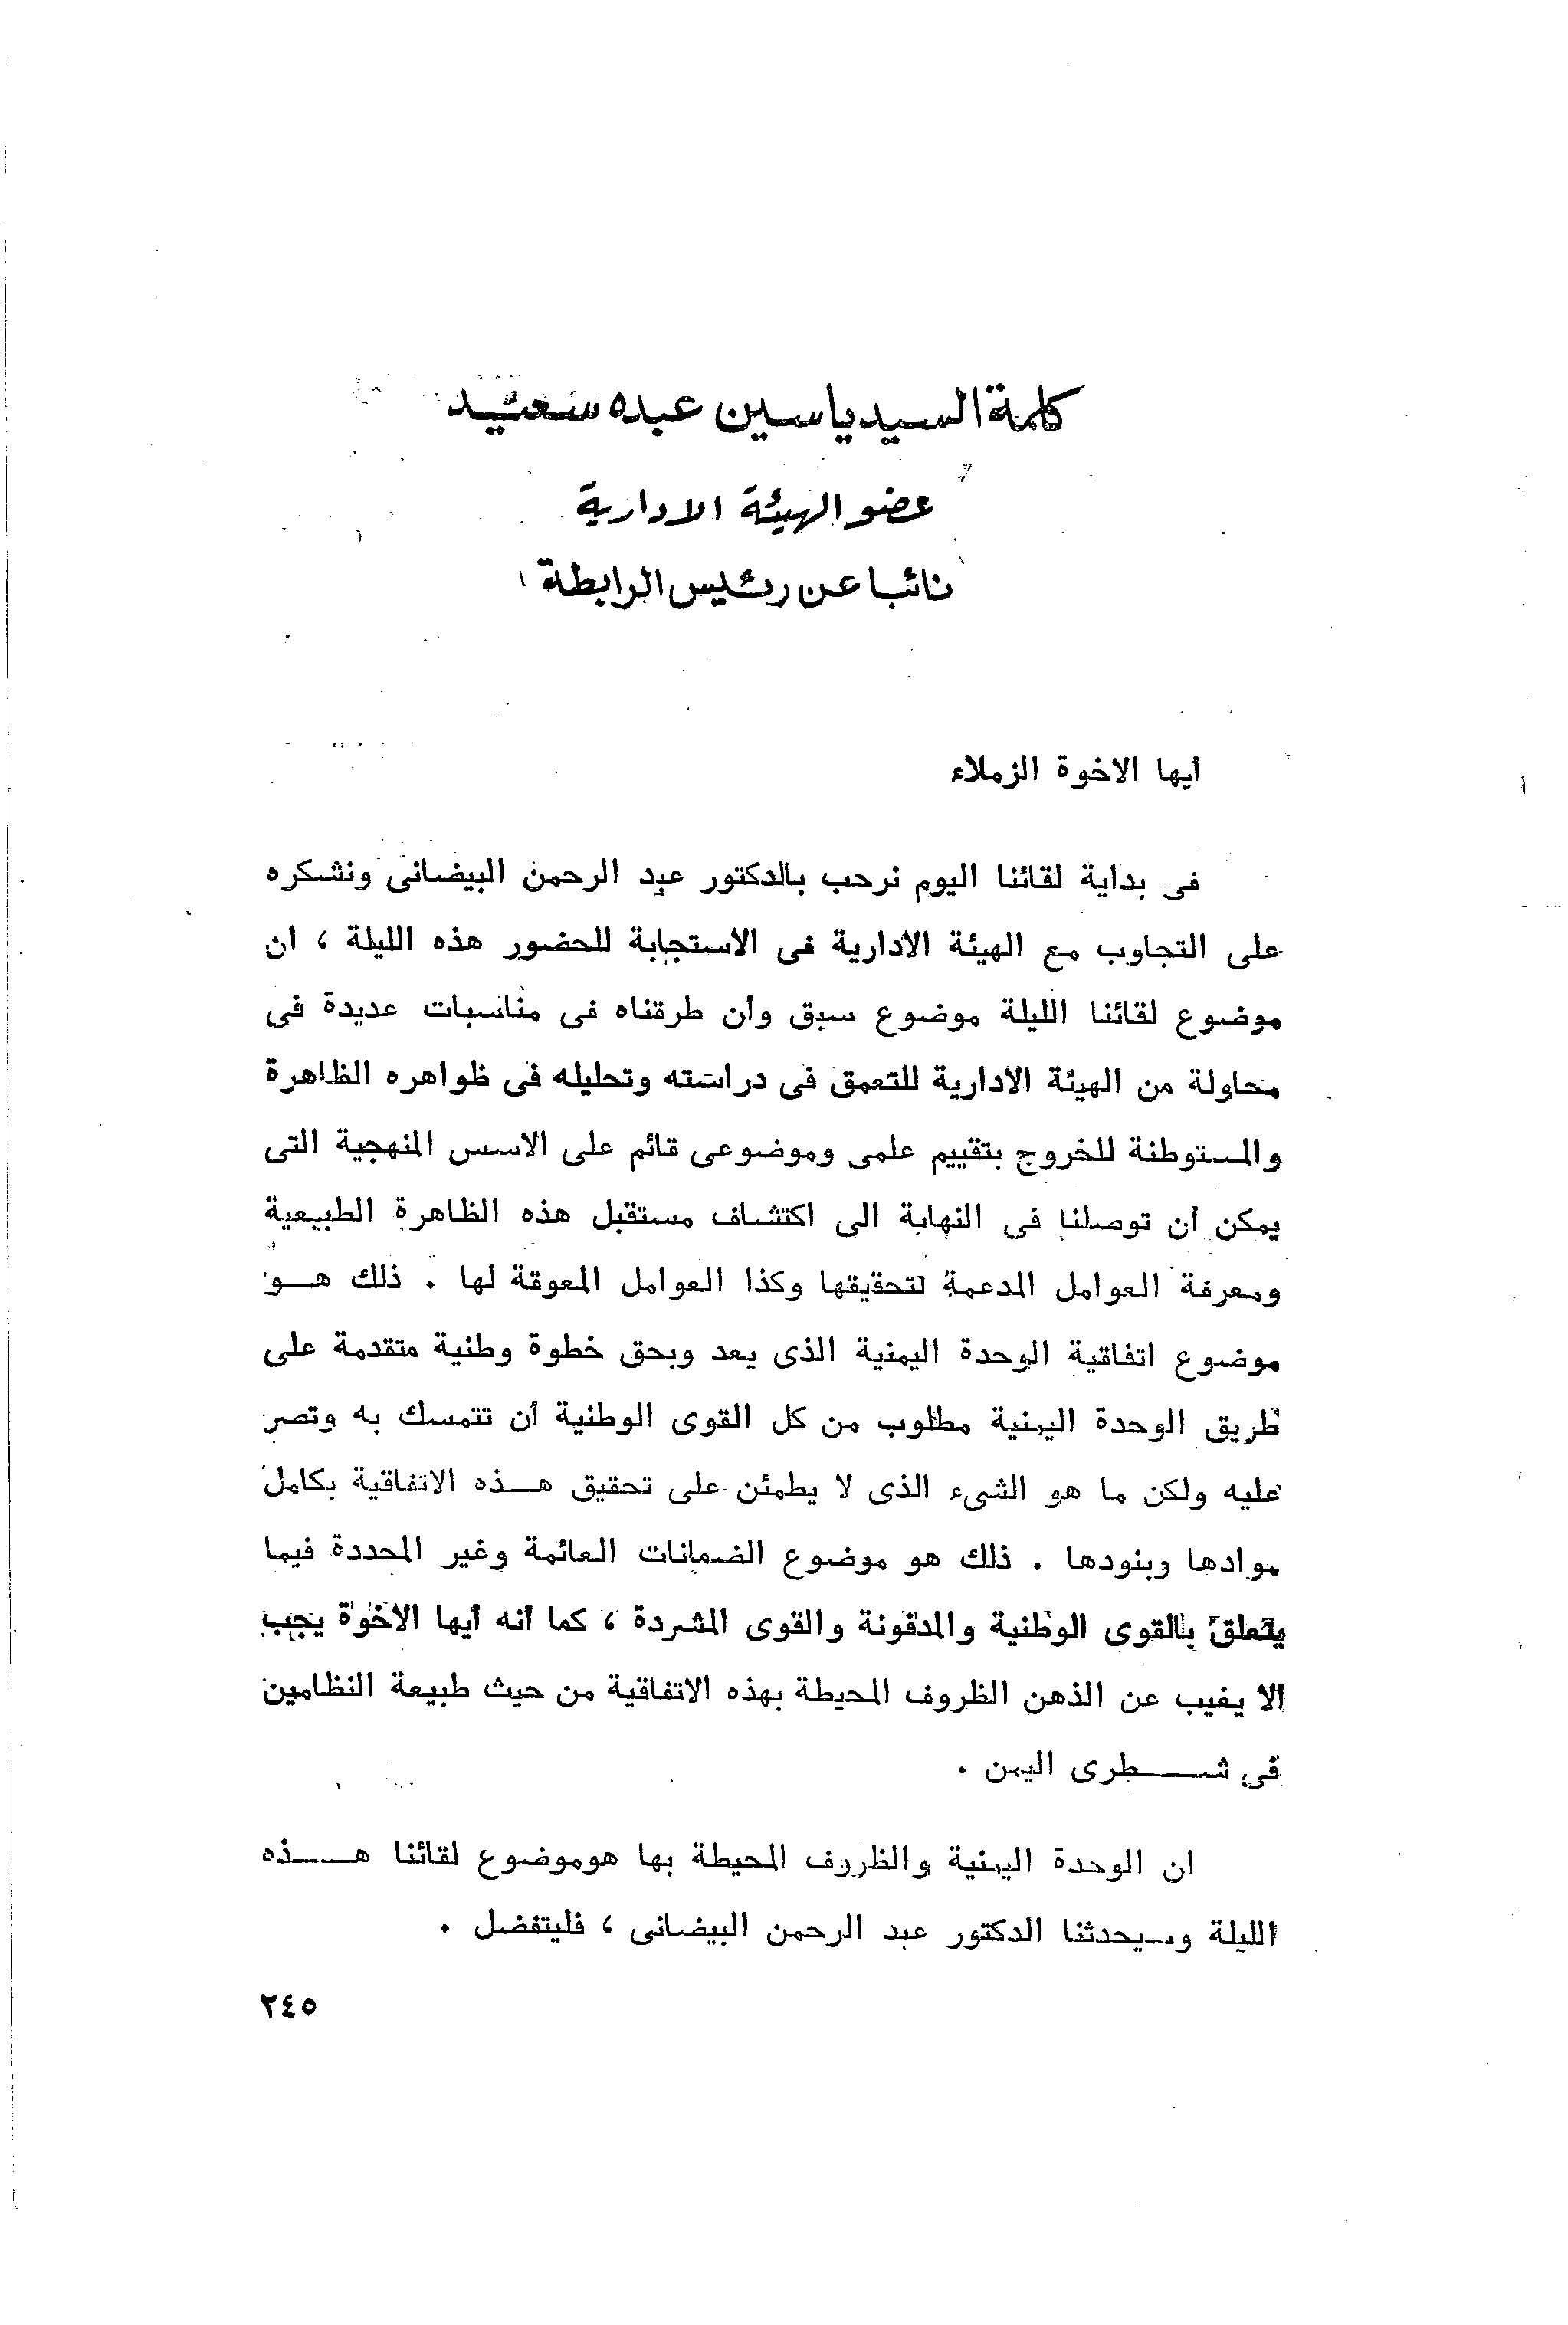 كلمة السيد ياسين عبده سعيد
عضو الهيئة الادارية
نائبا عن رئيس الرابطة
أيها الاخوة الزملاء
فى بداية لقائنا اليوم نرحب بالدكتور عبد الرحمن البيضانى ونشكره
على التجاوب مع الهيئة الادارية فى الاستجابة للحضور هذه الليلة ، ان
موضوع لقائنا الليلة موضوع سبق وأن طرقناه فى مناسبات عديدة فى
محاولة من الهيئة الادارية للتعمق فى دراسته وتحليله فى ظواهره الظاهرة
والمستوطنة للخروج بتقييم علمى وموضوعى قائم على الاسس المنهجية التى
يمكن أن توصلنا فى النهاية الى اكتشاف مستقبل هذه الظاهرة الطبيعية
ومعرفة العوامل المدعمة لتحقيقها وكذا العوامل المعوقة لها . ذلك هـــو
موضوع اتفاقية الوحدة اليمنية الذى يعد وبحق خطوة وطنية متقدمة على
طريق الوحدة اليمنية مطلوب من كل القوى الوطنية أن تتمسك به وتصر
عليه ولكن ما هو الشىء الذى لا يطمئن على تحقيق هـــذه الاتفاقية بكامل
موادها وبنودها . ذلك هو موضوع الضمانات العائمة وغير المحددة فيما
يتعلق بالقوى الوطنية والمدفونة والقوى المشردة ، كما أنه أيها الاخوة يجب
ألا يغيب عن الذهن الظروف المحيطة بهذه الاتفاقية من حيث طبيعة النظامين
فى شـــــطرى اليمن .
ان الوحدة اليمنية والظروف المحيطة بها هوموضوع لقائنا هـــــذه
الليلة وسيحدثنا الدكتور عبد الرحمن البيضانى ، فليتفضل .
٢٤٥